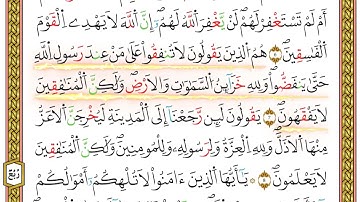 أَمْ لَمْ تَسْتَغْفِرْ لَهُمْ لَن يَغْفِرَ ٱللَّهُ لَهُمْ إِنَّ ٱللَّهَ لَا يَهْدِے اِ۬لْقَوْمَ
اَ۬لْفَٰسِقِينَ ٦ هُمُ اُ۬لذِينَ يَقُولُونَ لَا تُنفِقُواْ عَلَىٰ مَنْ عِندَ رَسُولِ اِ۬للَّهِ
حَتَّىٰ يَنفَضُّواْ وَلِلهِ خَزَآئِنُ اُ۬لسَّمَٰوَٰتِ وَالَارْضِ وَلَٰكِنَّ اَ۬لْمُنَٰفِقِينَ
لَا يَفْقَهُونَ ٧ يَقُولُونَ لَئِن رَّجَعْنَآ إِلَى اَ۬لْمَدِينَةِ لَيُخْرِجَنَّ اَ۬لَاعَزُّ
مِنْهَا اَ۬لَاذَلَّ وَلِلهِ اِ۬لْعِزَّةُ وَلِرَسُولِهِۦ وَلِلْمُومِنِينَ وَلَٰكِنَّ اَ۬لْمُنَٰفِقِينَ
لَا يَعْلَمُونَ ٨ يَٰٓأَيُّهَا اَ۬لذِينَ ءَامَنُواْ لَا تُلْهِكُمُۥٓ أَمْوَٰلُكُمْ
رُبُع